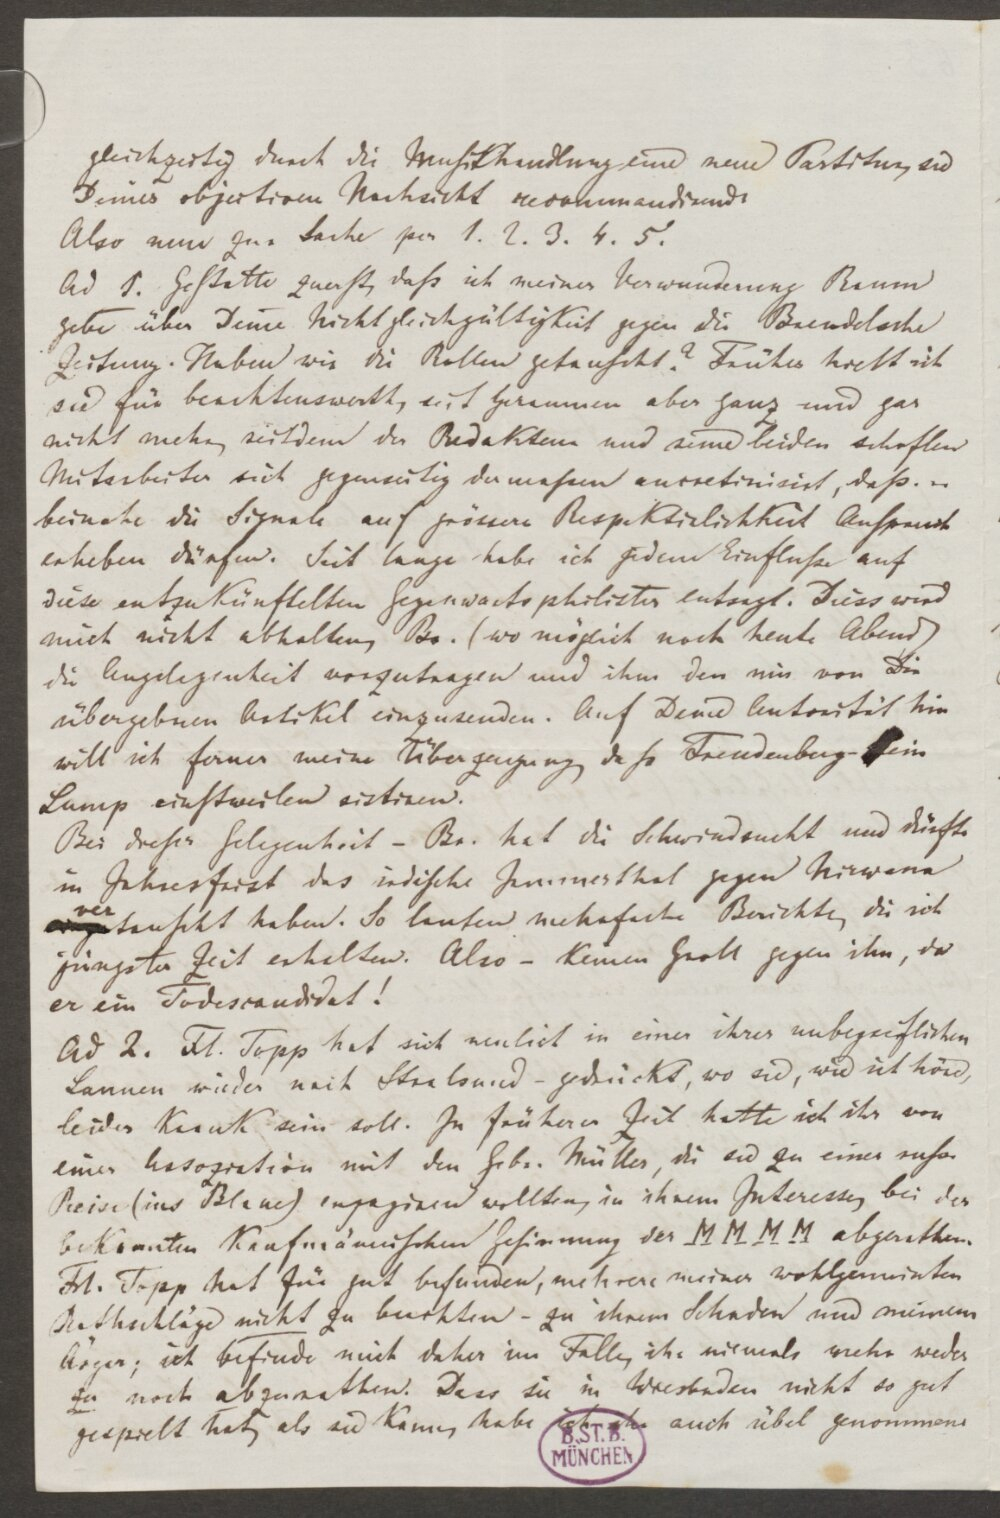 gleichzeitig durch die Musikhandlung eine neue Partitur, sie
Deiner objectiven Nachsicht recommandirend.
Also nun zur Sache per 1. 2. 3. 4. 5.
Ad 1. Gestatte zuerst, daß ich meiner Verwunderung Raum
gebe über Deine Nichtgleichgültigkeit gegen die Brendelsche
Zeitung. Haben wir die Rollen getauscht? Früher hielt ich
sie für beachtenswerth, seit Geraumem aber ganz und gar
nicht mehr, seitdem der Redakteur und seine beiden schoflen
Mitarbeiter sich gegenseitig dermaßen encretinisirt, daß
beinahe die Signale auf grössere Respektierlichkeit Anspruch
erheben dürfen. Seit lange habe ich jedem Einfluße auf
diese entzukünftelten Gegenwartsphilister entsagt. Diess wird
mich nicht abhalten, Br. (wo möglich noch heute Abend)
die Angelegenheit vorzutragen und ihm den mir von Dir
übergebnen Artikel einzusenden. Auf Deine Autorität hin
will ich ferner meine Überzeugung, daß Freudenberg ein
Lump einstweilen sistiren.
Bei dieser Gelegenheit – Br. hat die Schwindsucht und dürfte
in Jahresfrist das irdische Jammerthal gegen Nirwana
vertauscht haben. So lauten mehrfache Berichte, die ich
jüngster Zeit erhalten. Also – keinen Groll gegen ihn, da
er ein Todescandidat!
Ad 2. Frl. Topp hat sich neulich in einer ihrer unbegreiflichen
Launen wieder nach Stralsund – gedrückt, wo sie, wie ich höre,
leider krank sein soll. In früherer Zeit hatte ich ihr von
einer Association mit den Gebr. Müller, die sie zu einer russ.
Reise (ins Blaue) engagiren wollten, in ihrem Interesse, bei der
bekannten kaufmännischen Gesinnung der M M M M abgerathen.
Frl. Topp hat für gut befunden, mehrere meiner wohlgemeinten
Rathschläge nicht zu beachten – zu ihrem Schaden und meinem
Ärger; ich befinde mich daher im Falle, ihr niemals mehr weder
zu noch abzurathen. Dass sie in Wiesbaden nicht so gut
gespielt hat, als sie kann, habe ich ihr auch übel genommen
B.ST.B.
MÜNCHEN